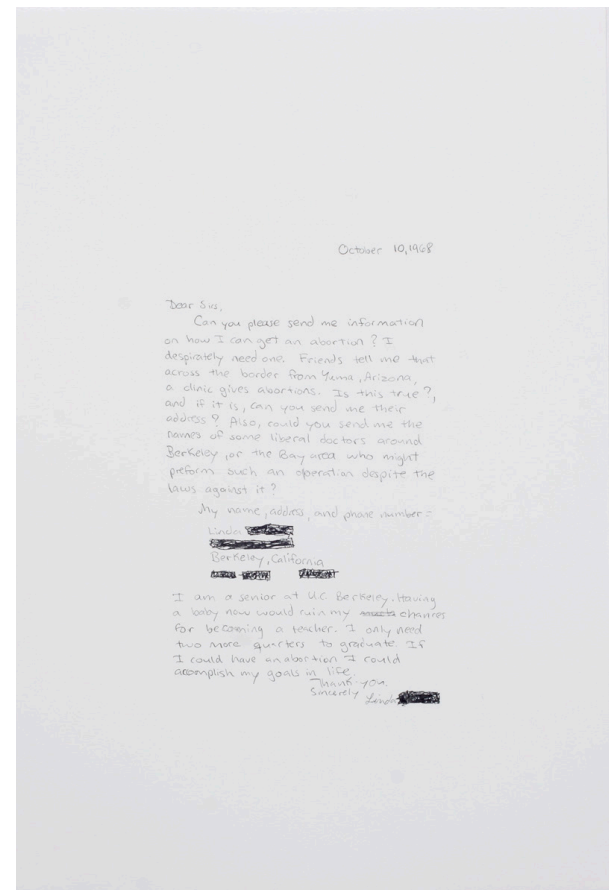 October 10, 1968
Dear Sirs,
Can you please send me information
on how I can get an abortion? I
despirately need one. Friends tell me that
across the border from Yuma, Arizona,
a clinic gives abortions. Is this true?,
and if it is, can you send me their
address? Also, could you send me the
names of some liberal doctors around
Berkeley, or the Bay area who might
preform such an operation despite the
laws against it?
My name, address, and phone number:
Linda
Berkeley, California
I am a senior at U.C. Berkeley. Having
a baby now would ruin my chances
for becoming a teacher. I only need
two more quarters to graduate. If
I could have an abortion I could
acomplish my goals in life.
Thank-you.
Sincerely
Linda